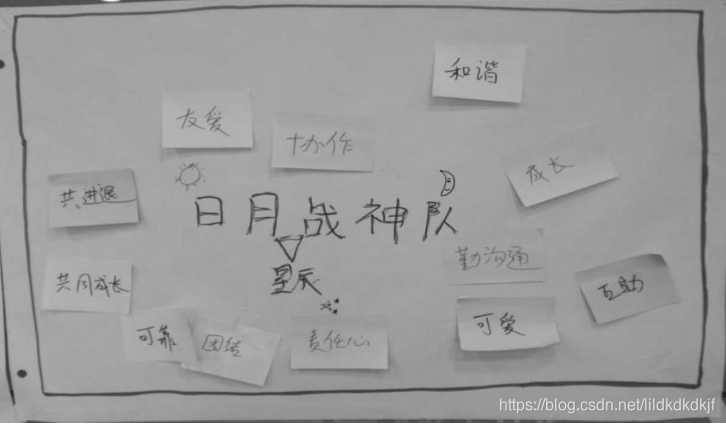 和谐
友爱
协作
成长
共进退
日月战神队
星辰
勤沟通
共同成长
互助
可靠
团结
责任心
可爱
https://blog.csdn.net/lildkdkdkjf